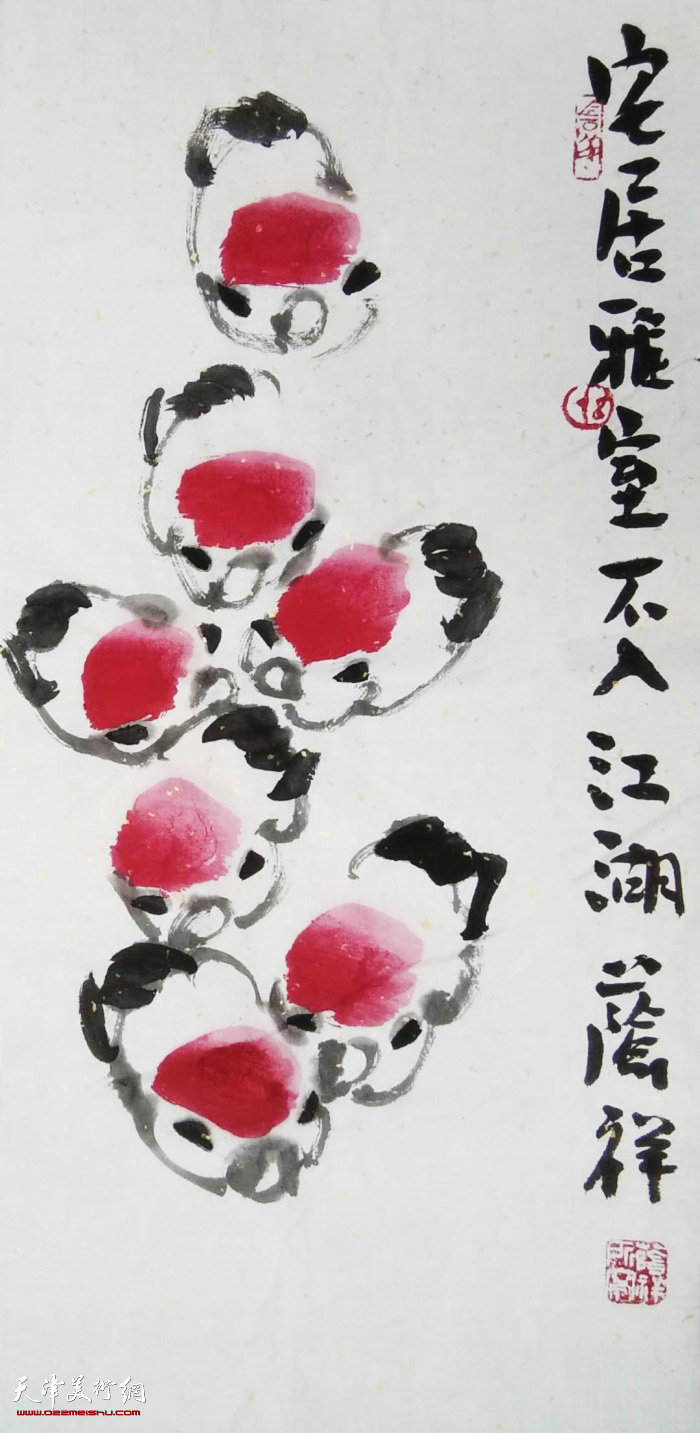 宅居雅室不入江湖 荫祥
天津美術網
www.022meishu.com